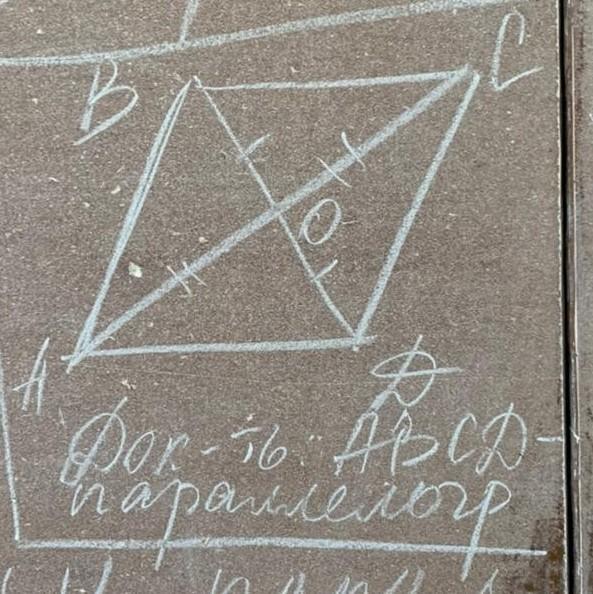 B
C
O
A
D
Док-ть: ABCD-
параллелогр